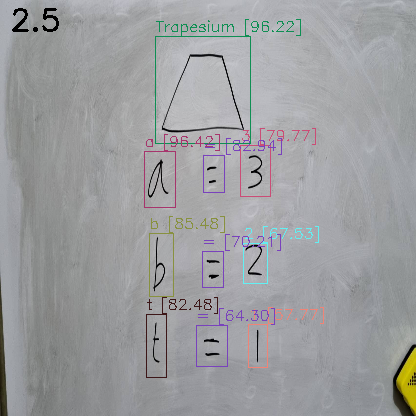 2.5
Trapesium [96.22]
a [96.42] = [82.94] 3 [79.77]
a = 3
b [85.48] = [70.21] 2 [67.53]
b = 2
t [82.48] = [64.30]
t = 1